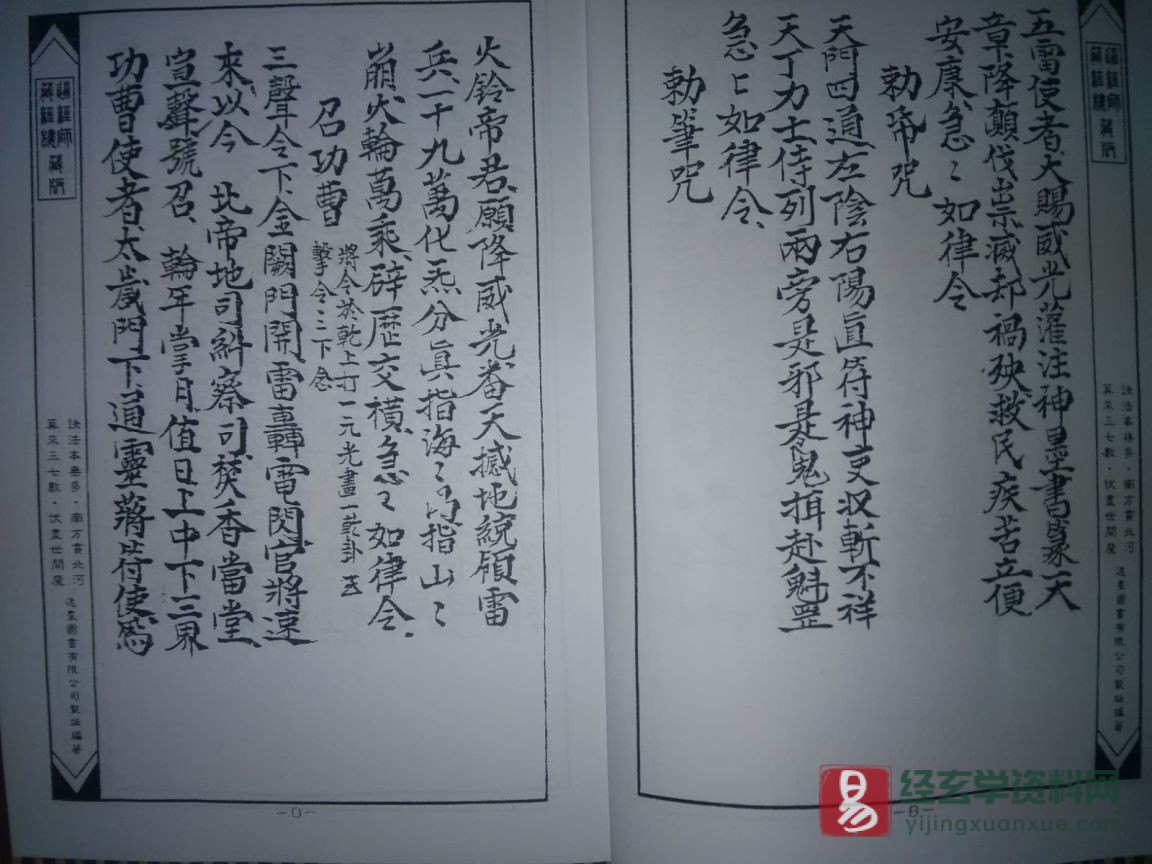 五雷使者、大賜威光、灌注神墨、書篆天
章、降顛伐祟、滅却禍殃、救民疾苦、立便
安康、急〻如律令
勅帋咒
天門四通、左陰右陽、直符神吏、收斬不祥
天丁力士、侍列兩旁、是邪是鬼、揖赴魁罡
急〻如律令、
勅筆咒
-8-
火鈴帝君、願降威光、番天撼地、統領雷
兵、一十九萬、化炁分真、指海〻 指山〻
崩、火輪萬乘、辟歷交橫、急〻如律令.
召功曹
將令於乾上打一元光畫一乾卦
擊令三下念
三聲令下、金闕門開、雷轟電閃、官將速
來、以今 北帝地司糾察司、焚香當堂、
宣聲號召、輪年掌月、值日上中下三界
功曹使者、太歲門下、通靈蔣符使、爲
-9-
道經師
藏經樓 藏版
訣法本無多·南方貫北河
算來三七數·伏盡世間魔
逸群圖書有限公司製版編著
道經師
藏經樓 藏版
訣法本無多·南方貫北河
算來三七數·伏盡世間魔
逸群圖書有限公司製版編著
易
经玄学资料网
yijingxuanxue.com